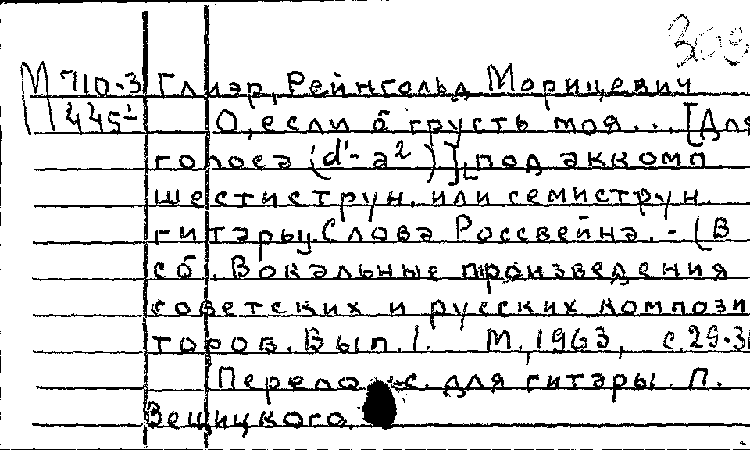 309
М 710-3 Глиэр, Рейнгольд Морицевич
445¹ О, если б грусть моя... [Для
голоса (d'-a²)], под аккомп.
шестиструн. или семиструн.
гитары. Слова Россвейна. - (В
сб. Вокальные произведения
советских и русских компози
торов. Вып. 1. М., 1963, с. 29-3
для гитары П.
Вещицкого.